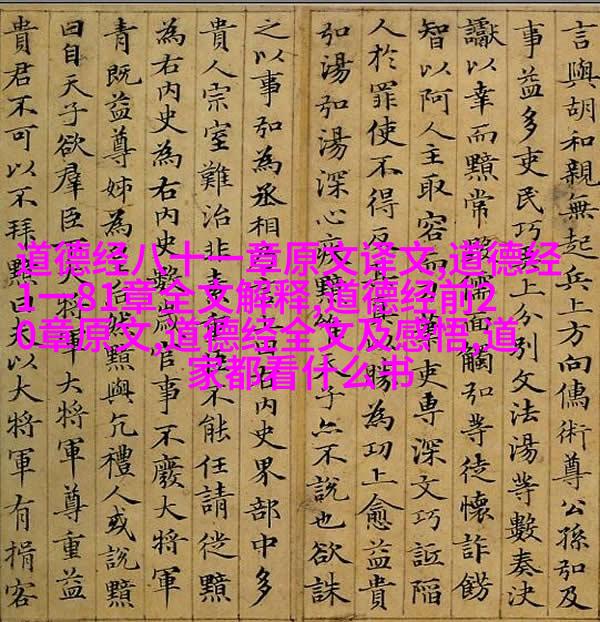 道德经八十一章原文译文,道德经
1一81章全文解释,道德经前2
0章原文,道德经全文及感悟,道
家都看什么书
言與胡和親無起兵上方向儒術尊公孫弘及
事益多吏民巧上分別文法湯等數奏決
讞以幸而黯常毀儒面觸弘等徒懷詐飾
智以阿人主取容而吏專深文巧詆陷
人於罪使不得反以勝為功上愈益貴
弘湯弘湯深心疾黯天子亦不說也欲誅
之以事弘為丞相右內史界部中多
貴人宗室難治非素臣不能任請徙黯
為右內史為右內史數歲官事不廢大將軍
青既益尊姊為后然黯與亢禮人或說黯
曰自天子欲羣臣大將軍大將軍尊重益
貴君不可以不拜黯曰夫以大將軍有揖客